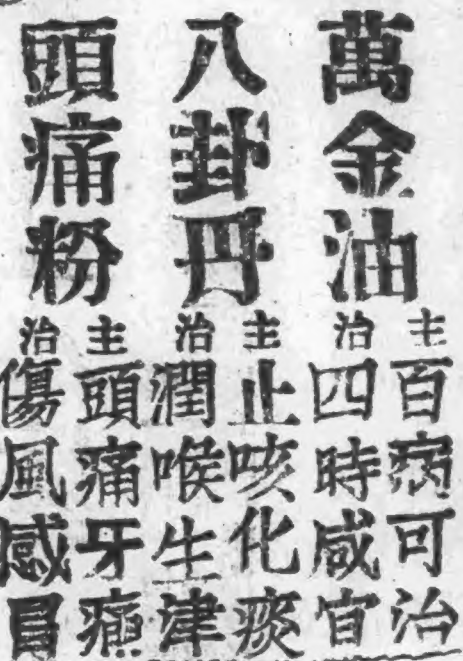 萬金油
主治
百病可治
四時咸宜
八卦丹
主治
止咳化痰
潤喉生津
頭痛粉
主治
頭痛牙
傷風感冒